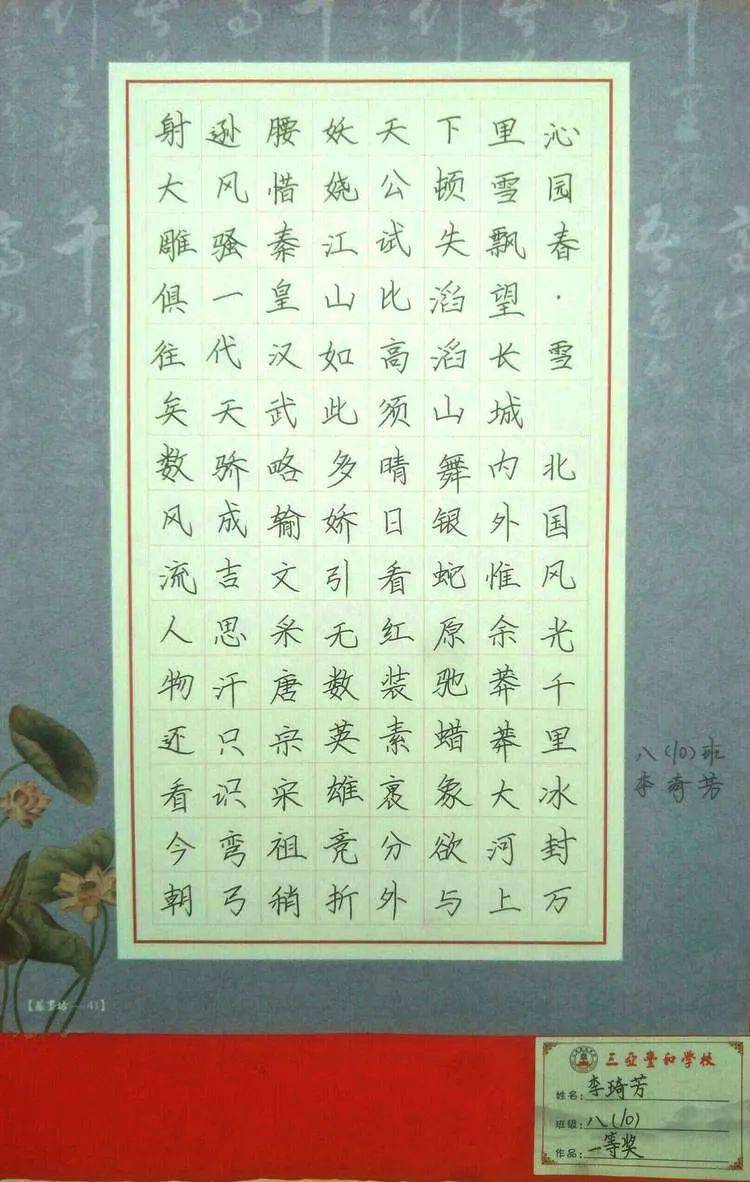 沁园春·雪 北国风光千里冰封万
里雪飘望长城内外惟余莽莽大河上
下顿失滔滔山舞银蛇原驰蜡象欲与
天公试比高须晴日看红装素裹分外
妖娆江山如此多娇引无数英雄竞折
腰惜秦皇汉武略输文采唐宗宋祖稍
逊风骚一代天骄成吉思汗只识弯弓
射大雕俱往矣数风流人物还看今朝
八(10)班
李琦芳
三亚丰和学校
姓名:李琦芳
班级:八(10)
作品:一等奖